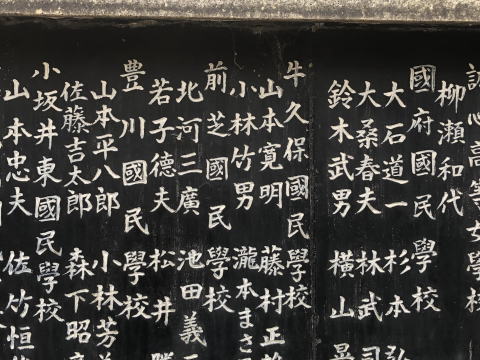 誠心高等女學校
柳瀬和代
國府國民學校
大石道一 杉本弘
大桑春夫 林武司
鈴木武男 横山
牛久保國民學校
山本寛明 藤村正
小林竹男 瀧本まさ
前芝國民學校
北河三廣 池田義
若子德夫 松井
豊川國民學校
山本平八郎 小林芳
佐藤吉太郎 森下昭
小坂井東國民學校
山本忠夫 佐竹恒